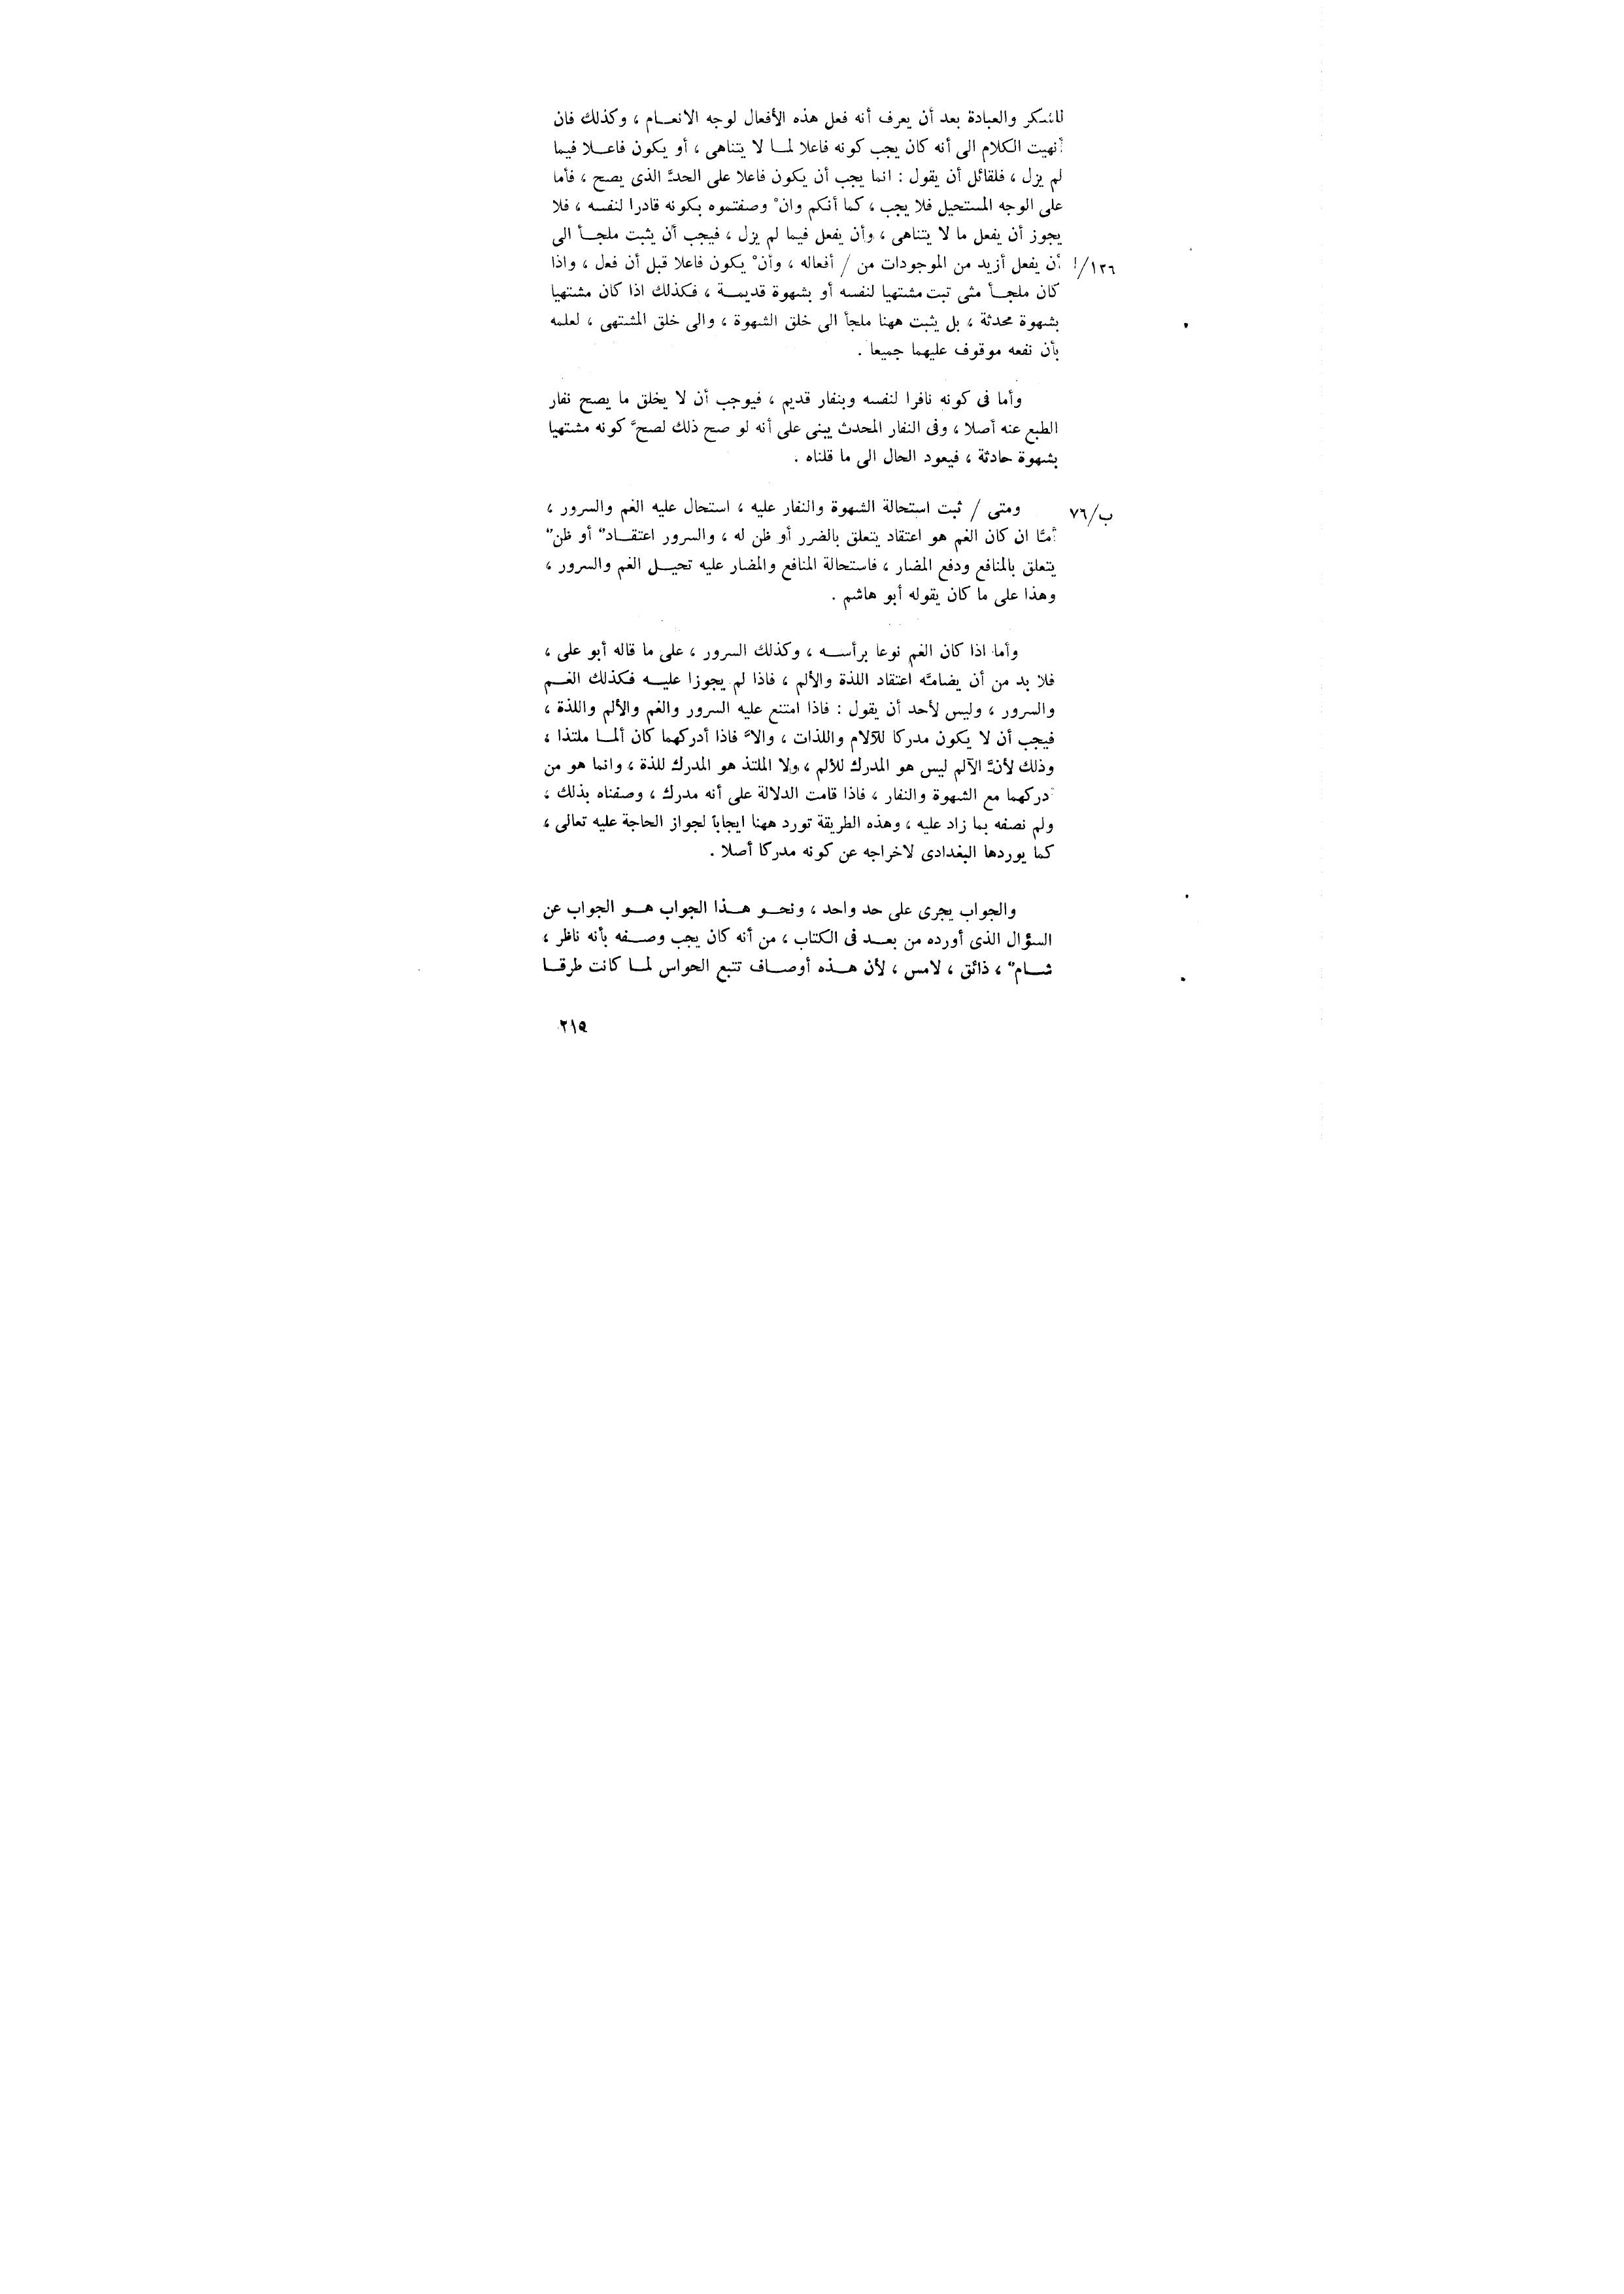 للشكر والعبادة بعد أن يعرف أنه فعل هذه الأفعال لوجه الانعــام ، وكذلك فان
أنهيت الكلام الى أنه كان يجب كونه فاعلا لمــا لا يتناهى ، أو يكون فاعــلا فيما
لم يزل ، فلقائل أن يقول : انما يجب أن يكون فاعلا على الحدِّ الذى يصح ، فأما
على الوجه المستحيل فلا يجب ، كما أنكم وانْ وصفتموه بكونه قادرا لنفسه ، فلا
يجوز أن يفعل ما لا يتناهى ، وأن يفعل فيما لم يزل ، فيجب أن يثبت ملجــأ الى
أن يفعل أزيد من الموجودات من / أفعاله ، وأنْ يكون فاعلا قبل أن فعل ، واذا
١٢٦/أ
كان ملجــأ متى ثبت مشتهيا لنفسه أو بشهوة قديمــة ، فكذلك اذا كان مشتهيا
بشهوة محدثة ، بل يثبت ههنا ملجأ الى خلق الشهوة ، والى خلق المشتهى ، لعلمه
بأن نفعه موقوف عليهما جميعا .
وأما فى كونه نافرا لنفسه وبنفار قديم ، فيوجب أن لا يخلق ما يصح نفار
الطبع عنه أصلا ، وفى النفار المحدث يبنى على أنه لو صح ذلك لصحَّ كونه مشتهيا
بشهوة حادثة ، فيعود الحال الى ما قلناه .
ومتى / ثبت استحالة الشهوة والنفار عليه ، استحال عليه الغم والسرور ،
٧٦/ب
أمَّا ان كان الغم هو اعتقاد يتعلق بالضرر أو ظن له ، والسرور اعتقــادٌ أو ظنٌ
يتعلق بالمنافع ودفع المضار ، فاستحالة المنافع والمضار عليه تحيــل الغم والسرور ،
وهذا على ما كان يقوله أبو هاشم .
وأما اذا كان الغم نوعا برأســه ، وكذلك السرور ، على ما قاله أبو على ،
فلا بد من أن يضامَّه اعتقاد اللذة والألم ، فاذا لم يجوزا عليــه فكذلك الغــم
والسرور ، وليس لأحد أن يقول : فاذا امتنع عليه السرور والغم والألم واللذة ،
فيجب أن لا يكون مدركا للآلام واللذات ، والاَّ فاذا أدركهما كان ألمــا ملتذا ،
وذلك لأنَّ الآلم ليس هو المدرك للألم ، ولا الملتذ هو المدرك للذة ، وانما هو من
أدركهما مع الشهوة والنفار ، فاذا قامت الدلالة على أنه مدرك ، وصفناه بذلك ،
ولم نصفه بما زاد عليه ، وهذه الطريقة تورد ههنا ايجاباً لجواز الحاجة عليه تعالى ،
كما يوردها البغدادى لاخراجه عن كونه مدركا أصلا .
والجواب يجرى على حد واحد ، ونحــو هــذا الجواب هــو الجواب عن
السؤال الذى أورده من بعــد فى الكتاب ، من أنه كان يجب وصــفه بأنه ناظر ،
شــامٌ ، ذائق ، لامس ، لأن هــذه أوصــاف تتبع الحواس لمــا كانت طرقــا
٢١٩